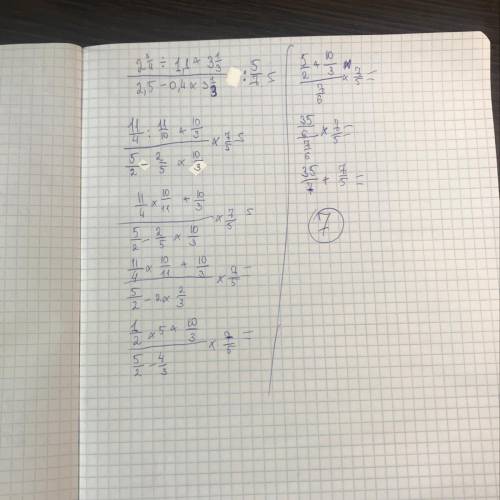 2 3/4 ÷ 1,1 + 3 1/3
2,5 - 0,4 × 3 1/3 : 5/7 =
11/4 : 11/10 + 10/3
5/2 - 2/5 × 10/3 × 7/5 =
11/4 × 10/11 + 10/3
5/2 - 2/5 × 10/3 × 7/5 =
11/4 × 10/11 + 10/3
5/2 - 2 × 2/3 × 7/5 =
1/2 × 5 + 10/3
5/2 - 4/3 × 7/5 =
5/2 + 10/3
7/6 × 7/5 =
35/6
7/6 × 7/5 =
35/7 + 7/5 =
7